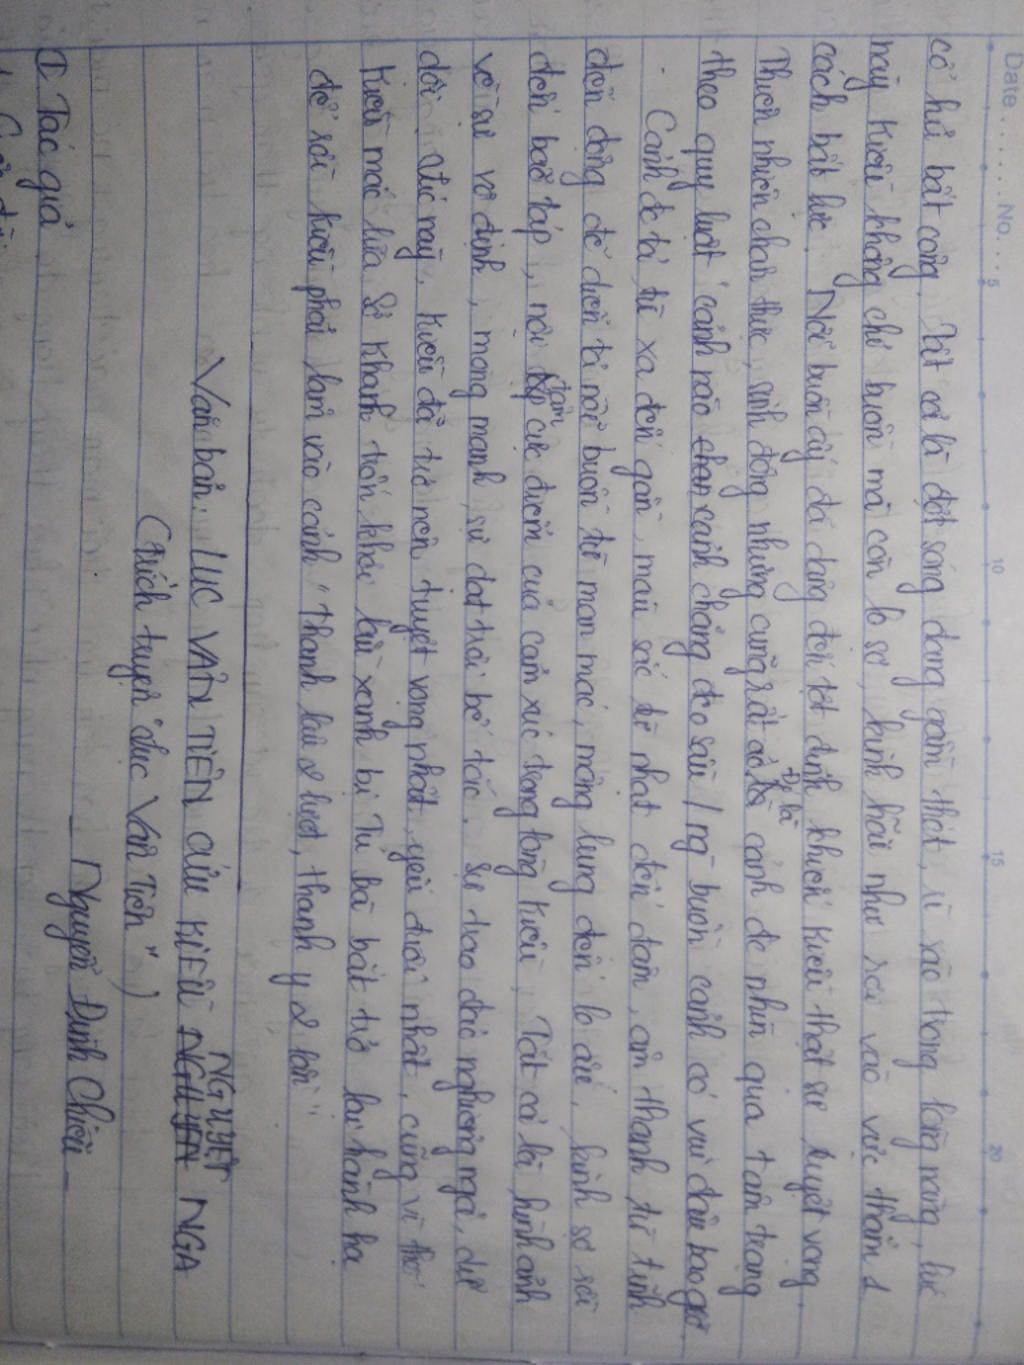 Date . . . . . . No. . . .
5 10 15 20
cổ hủ bất công. Tất cả là đợt sóng đang gầm thét, ì ào trong lòng nàng, lúc
này Kiều không chỉ buồn mà còn lo sợ, kinh hãi như rơi vào vực thẳm 1
cách bất lực. Nỗi buồn ấy đã dâng đến tột đỉnh khiến Kiều thật sự tuyệt vọng.
Thiên nhiên chân thực, sinh động nhưng cũng rất ảo. Đó là cảnh đc nhìn qua tâm trạng
theo quy luật "cảnh nào cảnh chẳng đeo sầu / ng buồn cảnh có vui đâu bao giờ
. Cảnh đc tả từ xa đến gần, màu sắc từ nhạt đến đậm, âm thanh từ tĩnh
đến động để diễn tả nỗi buồn từ man mác, mông lung đến lo âu, kinh sợ rồi
đến bão táp, nội tâm cực điểm của cảm xúc trong lòng Kiều. Tất cả là hình ảnh
về sự vô định, mong manh, sự dạt trôi bế tắc. Sự trao đảo nghiêng ngả, dữ
dội. Lúc này, Kiều đã trở nên tuyệt vọng nhất, yếu đuối nhất, cũng vì thế
Kiều mắc lừa Sở Khanh trốn khỏi lầu xanh bị Tú bà bắt trở lại hành hạ
để rồi Kiều phải lâm vào cảnh "thanh lâu 2 lượt, thanh y 2 lần"
Văn bản: LỤC VÂN TIÊN CỨU KIỀU NGUYỆT NGA
(Trích truyện "Lục Vân Tiên")
_ Nguyễn Đình Chiểu _
① Tác giả